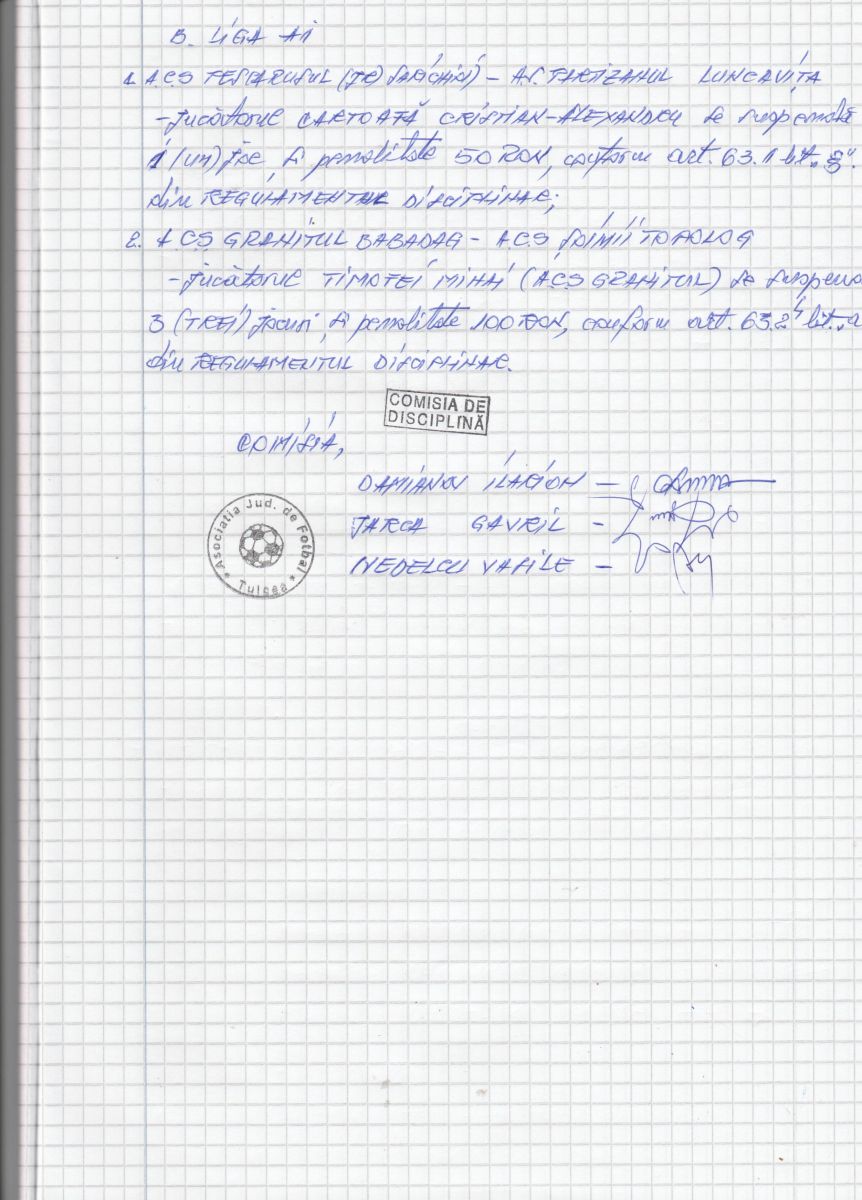 B. LIGA A II
1. A.C.S PESCARUSUL (JR) SARICHIOI – A.S. PARTIZANUL LUNCAVIȚA
– jucătorul CARTOAFĂ CRISTIAN-ALEXANDRU se suspendă
1 (un) joc și penalitate 50 RON, conform art. 63.1 lit.
din REGULAMENTUL DISCIPLINAR;
2. A.C.S GRANITUL BABADAG – A.C.S ȘOIMII TOPOLOG
– jucătorul TIMOTEI MIHAI (A.C.S GRANITUL) se suspend
3 (TREI) jocuri și penalitate 100 RON, conform art. 63.2 lit. „a
din REGULAMENTUL DISCIPLINAR.
COMISIA DE
DISCIPLINĂ
COMISIA,
DAMIANOV ILARION –
JARCA GAVRIL –
NEDELCU VASILE –
Asociatia Jud. de Fotbal
* Tulcea *